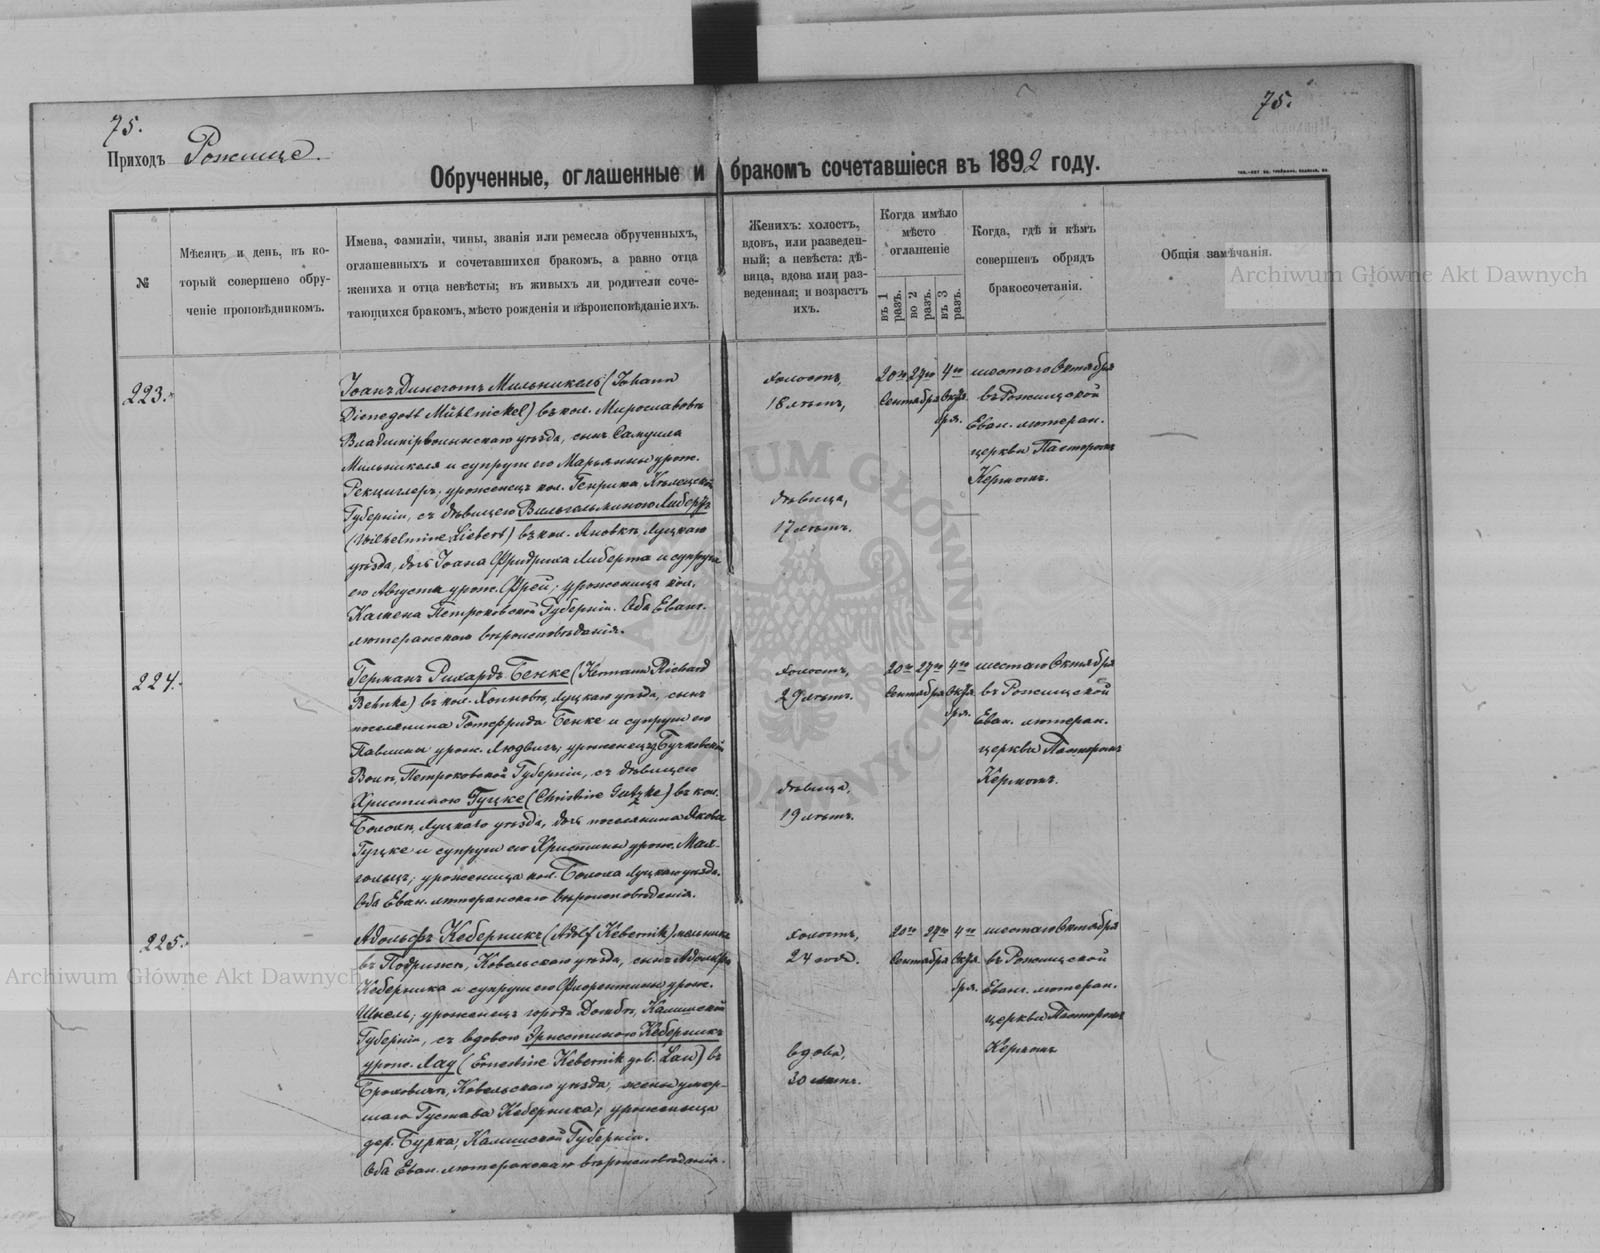 75.
75.
Приходъ Рожище.
Обрученные, оглашенные и бракомъ сочетавшіеся въ 1892 году.
№
Мѣсяцъ и день, въ ко-
торый совершено обру-
ченіе проповѣдникомъ.
Имена, фамиліи, чины, званія или ремесла обрученныхъ,
оглашенныхъ и сочетавшихся бракомъ, а равно отца
жениха и отца невѣсты; въ живыхъ ли родители соче-
тающихся бракомъ, мѣсто рожденія и вѣроисповѣданіе ихъ.
Женихъ: холостъ,
вдовъ, или разведен-
ный; а невѣста: дѣ-
вица, вдова или раз-
веденная; и возрастъ
ихъ.
Когда имѣло
мѣсто
оглашеніе
въ 1 разъ.
во 2 разъ.
въ 3 разъ.
Когда, гдѣ и кѣмъ
совершенъ обрядъ
бракосочетанія.
Общія замѣчанія.
Archiwum Główne Akt Dawnych
223.
Іоанъ Динеготъ Мильникель (Johann
Dienegott Mühlnickel) въ кол. Мирославовкѣ
Владимірволынскаго уѣзда, сынъ Самуила
Мильникеля и супруги его Марьянны урож.
Рекциглеръ; уроженецъ кол. Генрика Кѣлецской
Губерніи, съ дѣвицею Вильгельминою Либертъ
(Wilhelmine Liebert) въ кол. Яновкѣ, Луцкаго
уѣзда, дочь Іоана Фридриха Либерта и супруги
его Августы урож. Фрей; уроженица кол.
Калкена Петроковской Губерніи. Оба Еванг.
лютеранскаго вѣроисповѣданія.
холостъ,
18 лѣтъ,
дѣвица,
17 лѣтъ.
20го 27го 4го
Сентября Октя
бря.
шестаго Октября
въ Рожищской
Еван. лютеран.
церкви Пасторомъ
Кермомъ.
224.
Германъ Рихардъ Бенке (Hermann Richard
Behnke) въ кол. Копповкѣ, Луцкаго уѣзда, сынъ
поселянина Готфрида Бенке и супруги его
Павлины урож. Людвигъ; уроженецъ Бучковской
Воли, Петроковской Губерніи, съ дѣвицею
Христиною Гуцке (Christine Gutzke) въ кол.
Топола, Луцкаго уѣзда, дочь поселянина Якова
Гуцке и супруги его Христины урож. Мал-
гольцъ; уроженица кол. Топола Луцкаго уѣзда.
Оба Еван. лютеранскаго вѣроисповѣданія.
холостъ,
29 лѣтъ.
дѣвица,
19 лѣтъ.
20го 27го 4го
Сентября Октя
бря.
шестаго Октября
въ Рожищской
Еван. лютеран.
церкви Пасторомъ
Кермомъ.
225.
Адольфъ Кеберникъ (Adolf Kebernik) мельникъ
въ Подрижи, Ковельскаго уѣзда, сынъ Адольфа
Кеберника и супруги его Флорентины урож.
Шнель; уроженецъ города Домбе, Калишской
Губерніи, съ вдовою Эрнестиною Кеберникъ
урож. Лау (Ernestine Kebernik geb. Lau) въ
Броховичи, Ковельскаго уѣзда, жены умер-
шаго Густава Кеберника; уроженица
дер. Бурка, Калишской Губерніи.
Оба Еван. лютеранскаго вѣроисповѣданія.
холостъ,
24 года.
вдова,
30 лѣтъ.
20го 27го 4го
Сентября Октя
бря.
шестаго Октября
въ Рожищской
Еванг. лютеран.
церкви Пасторомъ
Кермомъ
Archiwum Główne Akt Dawnych